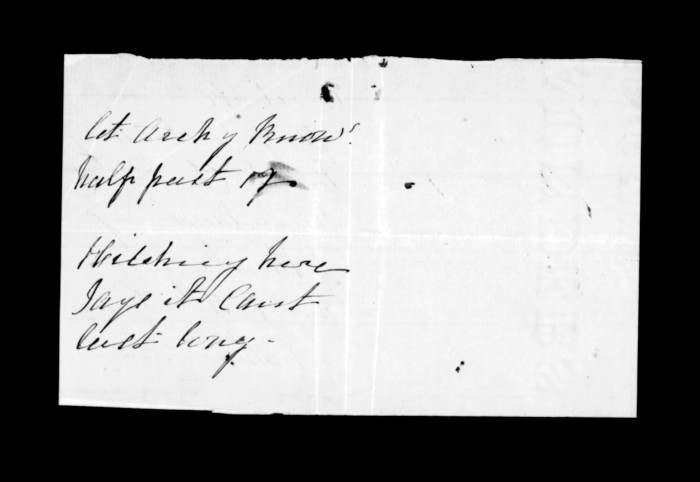 let Archy Know.
half past 12
Hitchiney here
Says it Cant
last long -